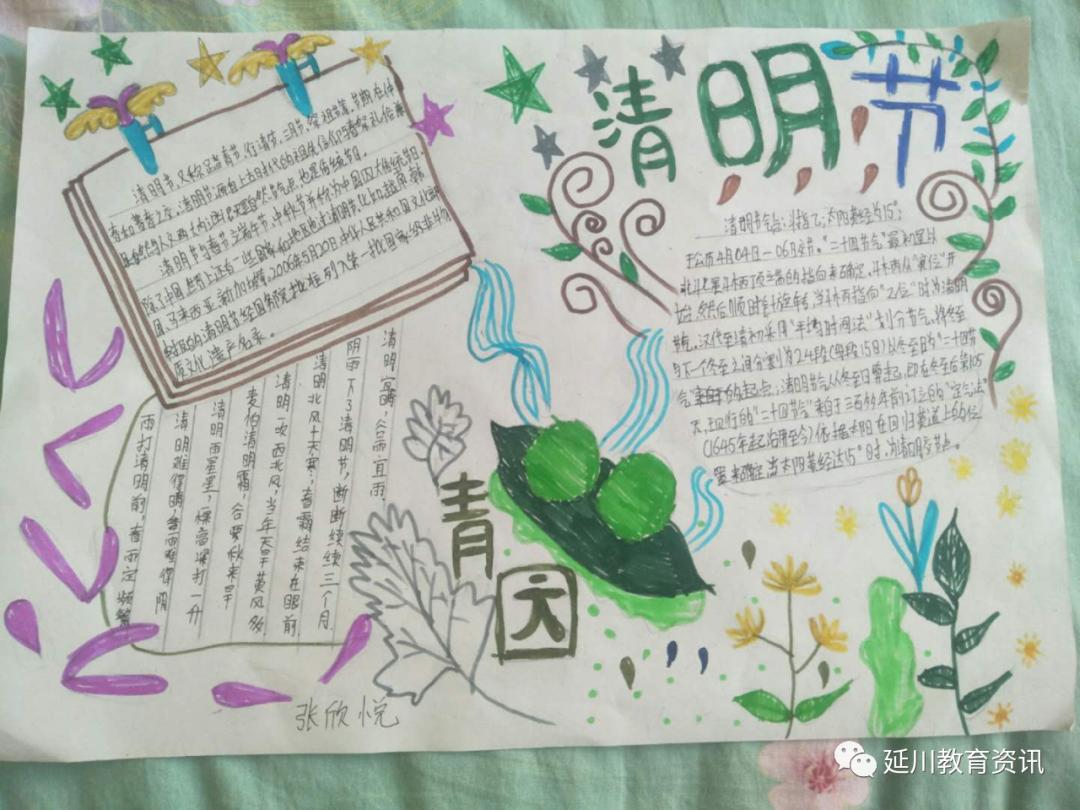 清明节
清明节,又称踏青节、行清节、三月节、祭祖节等,节期在仲
春和暮春之交。清明节源自上古时代的祖先信仰与春祭礼俗,兼
具自然与人文两大内涵,既是自然节气点,也是传统节日。
清明节与春节、端午节、中秋节并称为中国四大传统节日。
除了中国,世界上还有一些国家和地区也过清明节,比如越南、韩
国、马来西亚、新加坡等。2006年5月20日,中华人民共和国文化部
申报的清明节经国务院批准列入第一批国家级非物
质文化遗产名录。
清明节气:斗指乙;太阳黄经为15°;
于公历4月04日—06日交节。“二十四节气”最初是以
北斗七星斗柄顶端的指向来确定,斗柄从“寅位”开
始,然后顺时针旋转,当斗柄指向“乙位”时为清明
节气,汉代至清初采用“平均时间法”划分节气,将冬至
与下一个冬至之间分割为24段(每段15日)以冬至日为二十四节
气的起点;清明节气从冬至日算起,即在冬至后第105
天,现行的“二十四节气”来自于三百多年前订立的“定气法”
(1645年起沿用至今)依据太阳在回归黄道上的位
置来确定,当太阳黄经达15°时,为清明交节点。
清明宜晴,谷雨宜雨。
阴雨下了清明节,断断续续三个月
清明北风十天寒,春霜结束在眼前
清明一吹西北风,当年天旱黄风多
麦怕清明霜,谷要秋来旱
清明雨星星,一棵高粱打一升
清明难得晴,谷雨难得阴
雨打清明前,春雨定频繁
青
团
张欣悦
延川教育资讯